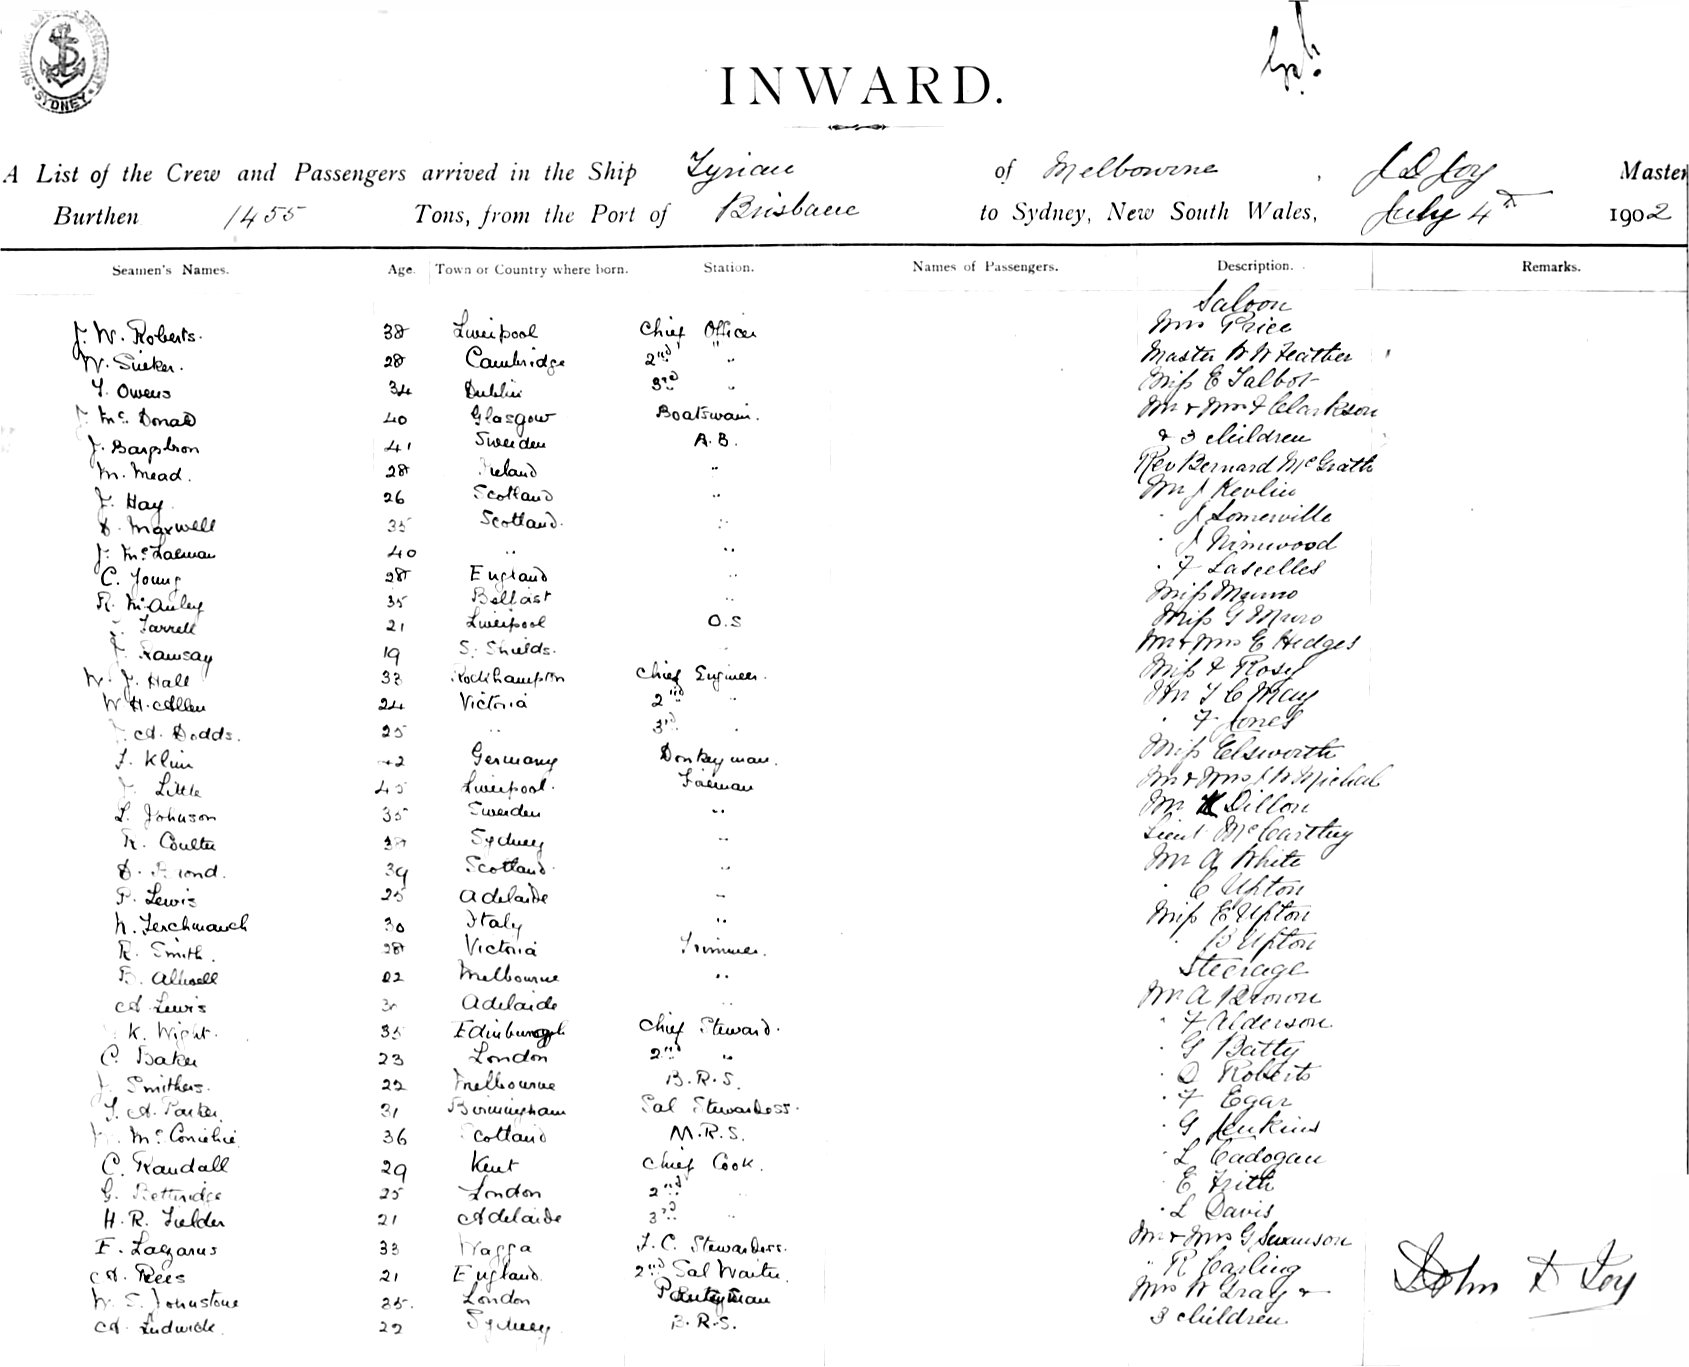 SYDNEY
INWARD.
A List of the Crew and Passengers arrived in the Ship Tyrian of Melbourne, J D Joy Master
Burthen 1455 Tons, from the Port of Brisbane to Sydney, New South Wales, July 4th 1902
Seamen's Names. Age. Town or Country where born. Station. Names of Passengers. Description. Remarks.
Saloon
J. W. Roberts. 38 Liverpool Chief Officer Mrs Price
W. Sucker. 28 Cambridge 2nd " Master W W Feather
T. Owens 34 Dublin 3rd " Miss E Talbot
J. McDonald 40 Glasgow Boatswain. Mr & Mrs F Clarkson
J. 41 Sweden A.B. & 3 children
M. Mead. 28 Ireland " Rev Bernard McGrath
J. Hay 26 Scotland " Mr J Kevlin
D. Maxwell 35 Scotland. " " J Somerville
J. 40 " " " J Nimwood
C. Young 28 England " " F Lascelles
R. McAuley 35 Belfast " Miss Munro
Farrell 21 Liverpool O.S Miss G Munro
J. Ramsay 19 S. Shields. Mr & Mrs E Hedges
W. J. Hall 33 Rockhampton Chief Engineer. Miss F Rosey
W H. Allen 24 Victoria 2nd " Mr T C May
A. Dodds. 25 " 3rd " " F Jones
J. Klim 42 Germany Donkeyman. Miss Elsworth
J. Little 45 Liverpool. Fireman Mr & Mrs J W Michael
L. Johnson 35 Sweden " Mr Dillon
R. Coulter Sydney " Lieut McCarthy
D. 39 Scotland " Mr A White
P. Lewis 25 Adelaide " " C Upton
N. 30 Italy " Miss E Upton
R. Smith. 28 Victoria Trimmer. " B Upton
B. Atwell 22 Melbourne " Steerage
A. Lewis Adelaide " Mr A Brown
K. Wight. 35 Edinburgh Chief Steward. " F Alderson
C. Baker 23 London 2nd " " G Batty
J. Smithers. 22 Melbourne B.R.S. " O Roberts
T. A. Parker. 31 Birmingham Sal Stewardess. " F Egar
McConichie 36 Scotland M.R.S. " G Jenkins
C. Randall 29 Kent Chief Cook. " L Cadogan
G. Bettridge 25 London 2nd " " E Frith
H. R. Fielder 21 Adelaide 3rd " " L Davis
F. Lazarus 33 Wagga F. C. Stewardess. Mr & Mrs G Swanson
A. Rees 21 England 2nd Sal Waiter. " R Carling
W. S. Johnstone 35. London Pantryman Mrs W Gray & John D Joy
A. Ludwick. 22 Sydney B.R.S. 3 children